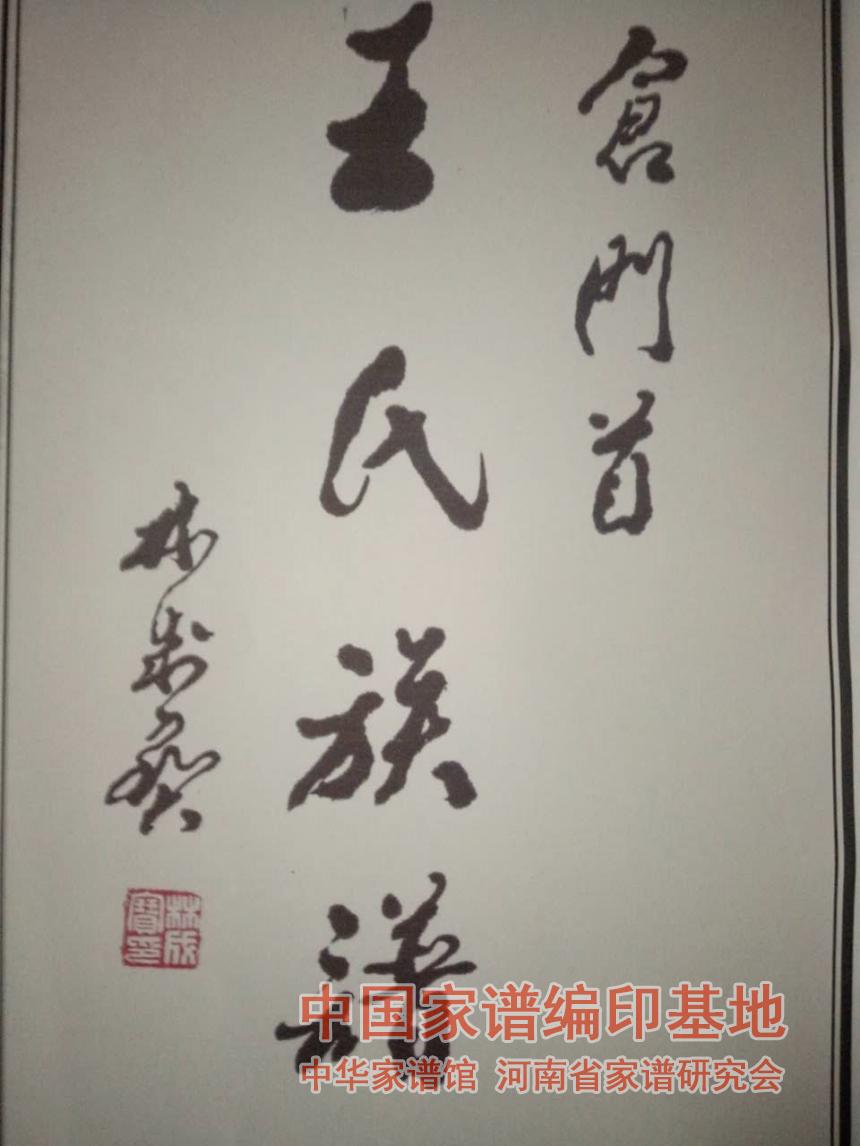 倉門首
王氏族譜
林成寶
林成
寶印
中国家谱编印基地
中华家谱馆 河南省家谱研究会